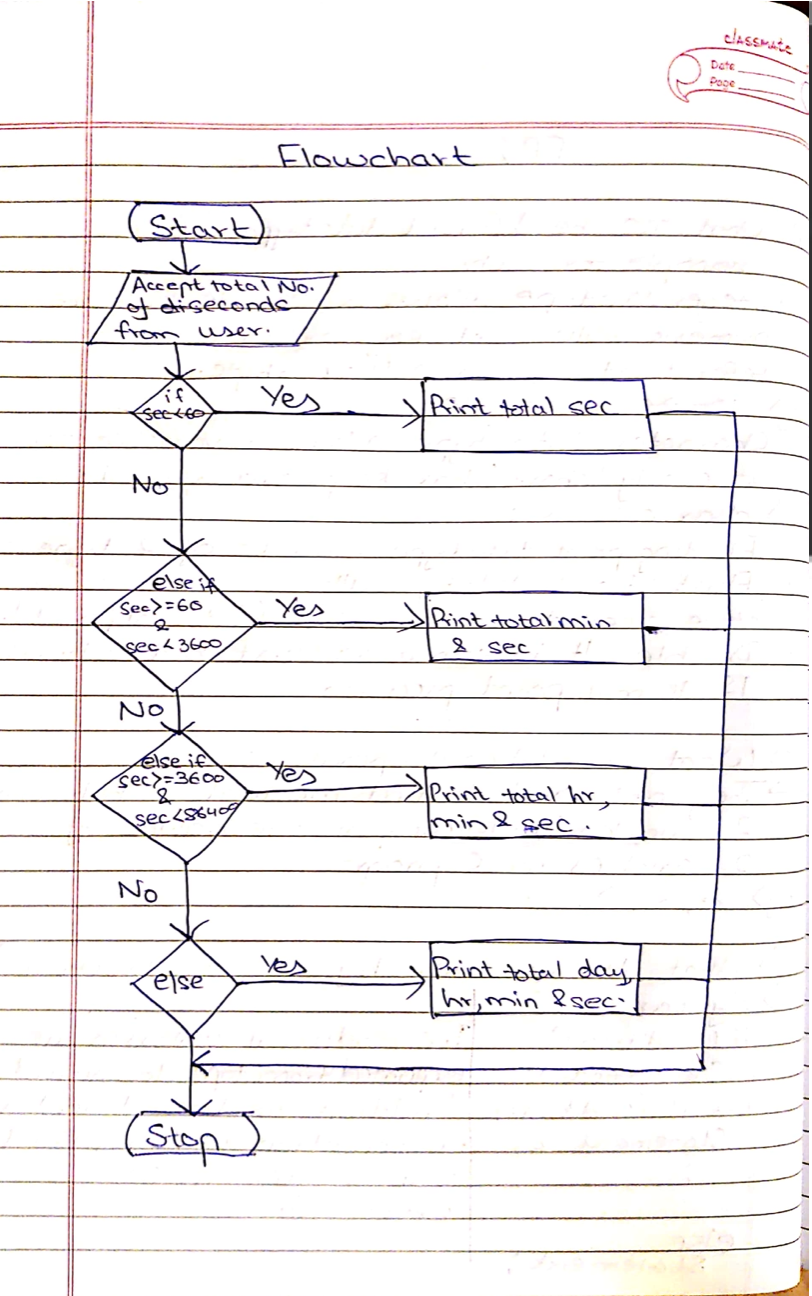 classmate
Date
Page
Flowchart
Start
Accept total No.
of diseconds
from user.
if
sec<60
Yes
Print total sec
No
else if
sec>=60
&
sec<3600
Yes
Print total min
& sec
No
else if
sec>=3600
&
sec<86400
Yes
Print total hr,
min & sec.
No
else
Yes
Print total day,
hr, min & sec.
Stop